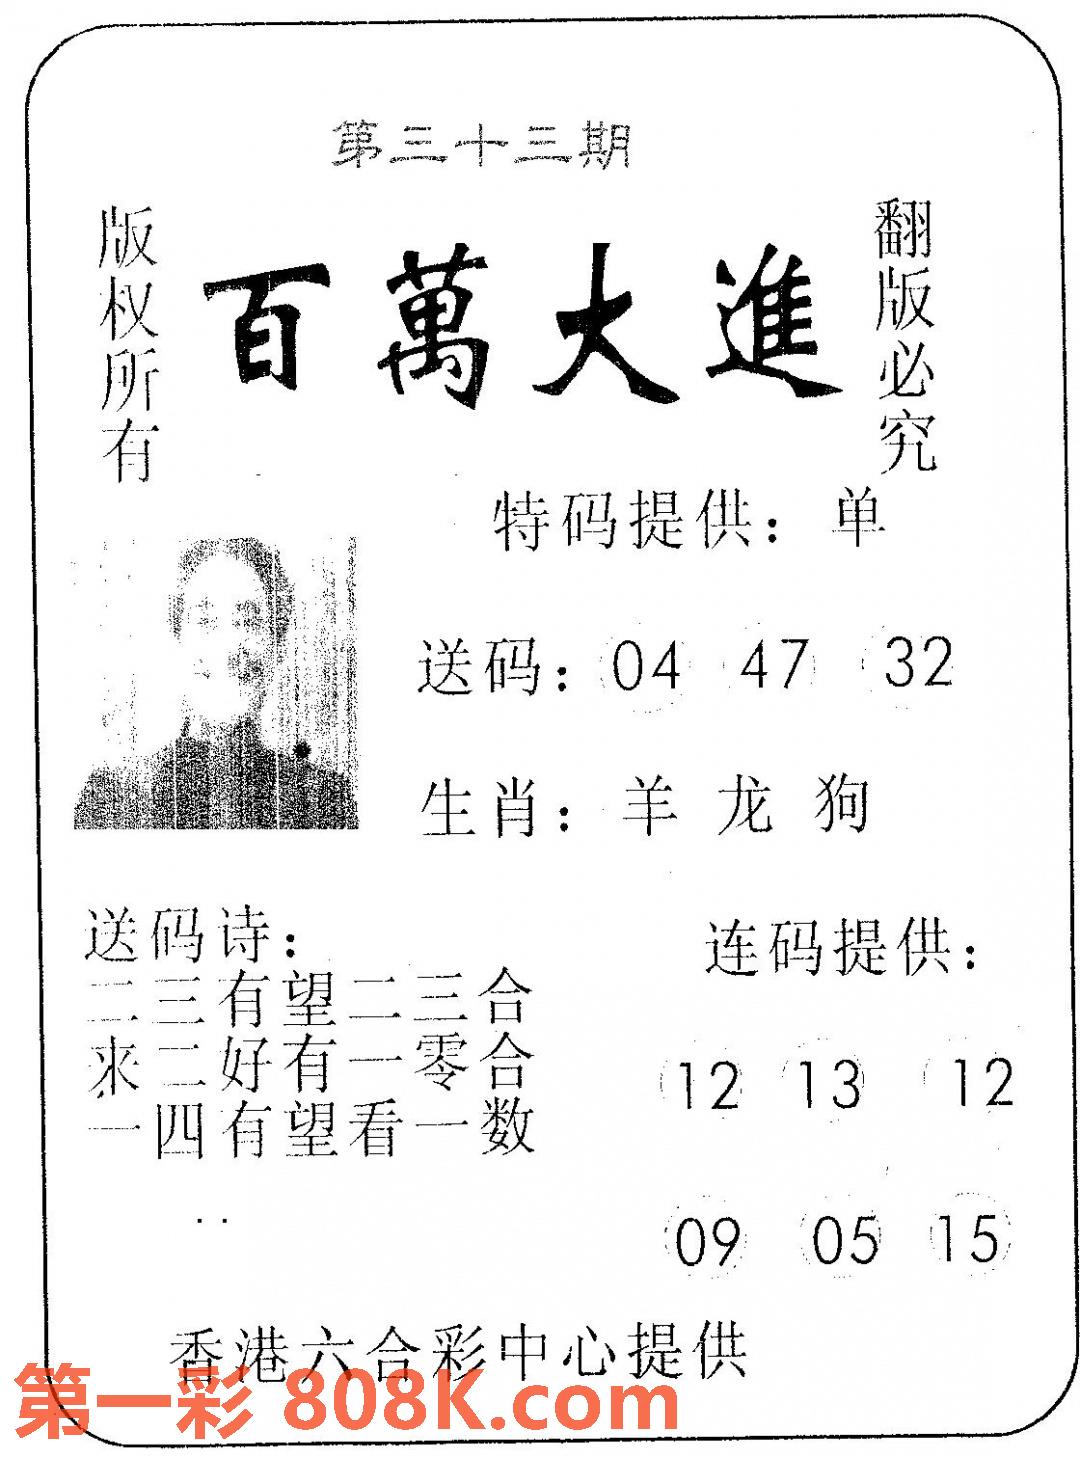 第三十三期
版权所有
百萬大進
翻版必究
特码提供：单
送码：04 47 32
生肖：羊 龙 狗
送码诗：
二三有望二三合
来二好有一零合
一四有望看一数
连码提供：
12 13 12
09 05 15
香港六合彩中心提供
第一彩 808K.com